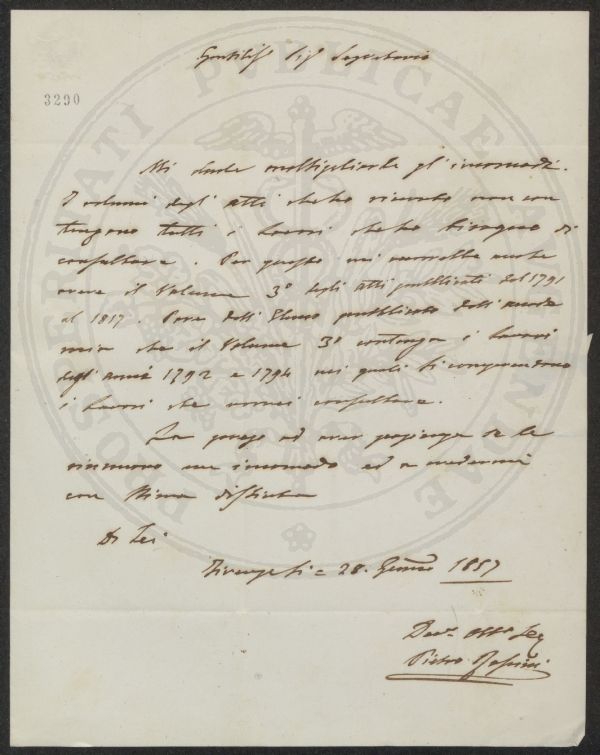 Gentilis. Sig. Segretario
3290
Mi duole moltiplicarle gl'incomodi.
I volumi degl'atti che ho ricevuto non con
tengono tutti i lavori che ho bisogno di
consultare. Per questo mi
avere il Volume 3º degli atti pubblicati dal 1791
al 1817. Pare dall'Elenco pubblicato dall'Accade
mia che il Volume 3º contenga i lavori
degl'anni 1792 e 1794 nei quali si comprendono
i lavori che vorrei consultare.
La prego ad aver pazienza se le
rinnuovo un incomodo ed a credermi
con stima distinta
Di Lei
Firenze li = 28. Genn. 1857
Dev. Obb. 
Pietro
PROSPERITATI PUBLICAE AUGENDAE